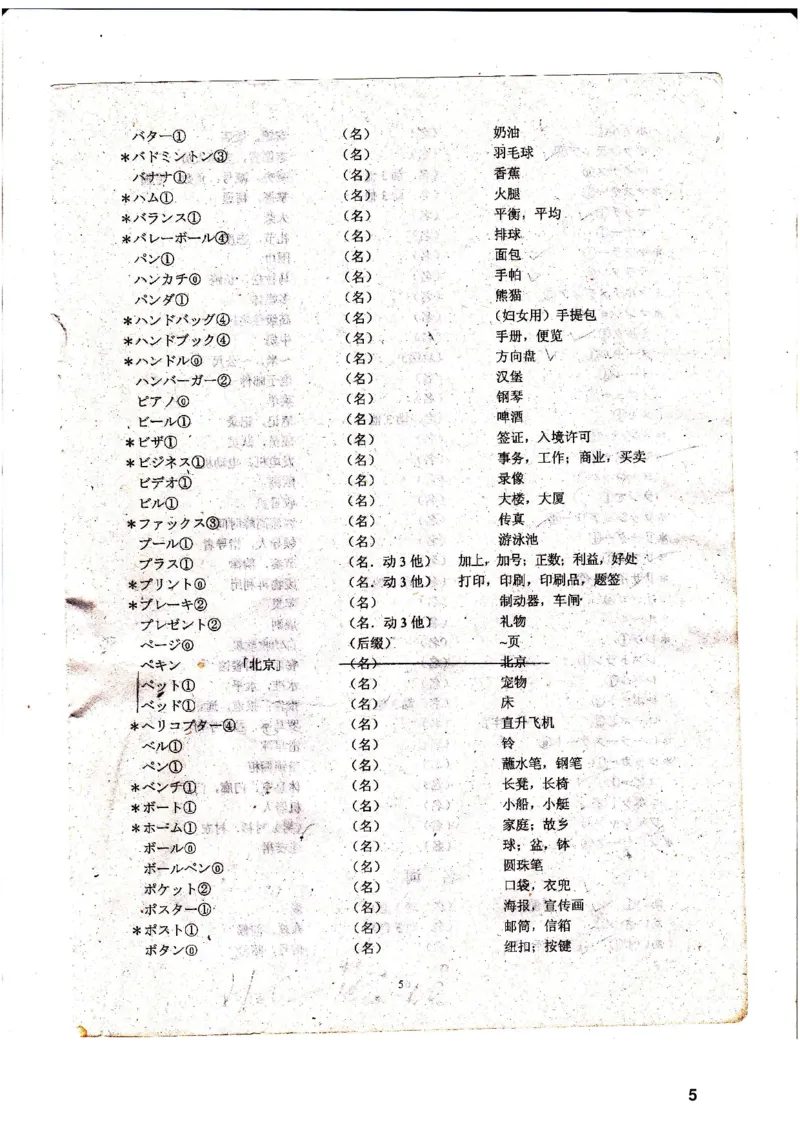 バター① （名） 奶油
＊バドミントン③ （名） 羽毛球
バナナ① （名） 香蕉
＊ハム① （名） 火腿
＊バランス① （名） 平衡，平均
＊バレーボール④ （名） 排球
パン① （名） 面包
ハンカチ⓪ （名） 手帕
パンダ① （名） 熊猫
＊ハンドバッグ④ （名） （妇女用）手提包
＊ハンドブック④ （名） 手册，便览
＊ハンドル⓪ （名） 方向盘
ハンバーガー② （名） 汉堡
ピアノ⓪ （名） 钢琴
ビール① （名） 啤酒
＊ビザ① （名） 签证，入境许可
＊ビジネス① （名） 事务，工作；商业，买卖
ビデオ① （名） 录像
ビル① （名） 大楼，大厦
＊ファックス③ （名） 传真
プール① （名） 游泳池
プラス① （名．动3他） 加上，加号；正数；利益，好处
＊プリント⓪ （名．动3他） 打印，印刷，印刷品，题签
＊ブレーキ② （名） 制动器，车闸
プレゼント② （名．动3他） 礼物
ページ⓪ （后缀） ~页
ペキン 「北京」 （名） 北京
ペット① （名） 宠物
ベッド① （名） 床
＊ヘリコプター④ （名） 直升飞机
ベル① （名） 铃
ペン① （名） 蘸水笔，钢笔
＊ベンチ① （名） 长凳，长椅
＊ボート① （名） 小船，小艇
＊ホーム① （名） 家庭；故乡
ボール⓪ （名） 球；盆，钵
ボールペン⓪ （名） 圆珠笔
ポケット② （名） 口袋，衣兜
ポスター① （名） 海报，宣传画
＊ポスト① （名） 邮筒，信箱
ボタン⓪ （名） 纽扣；按键
5
5